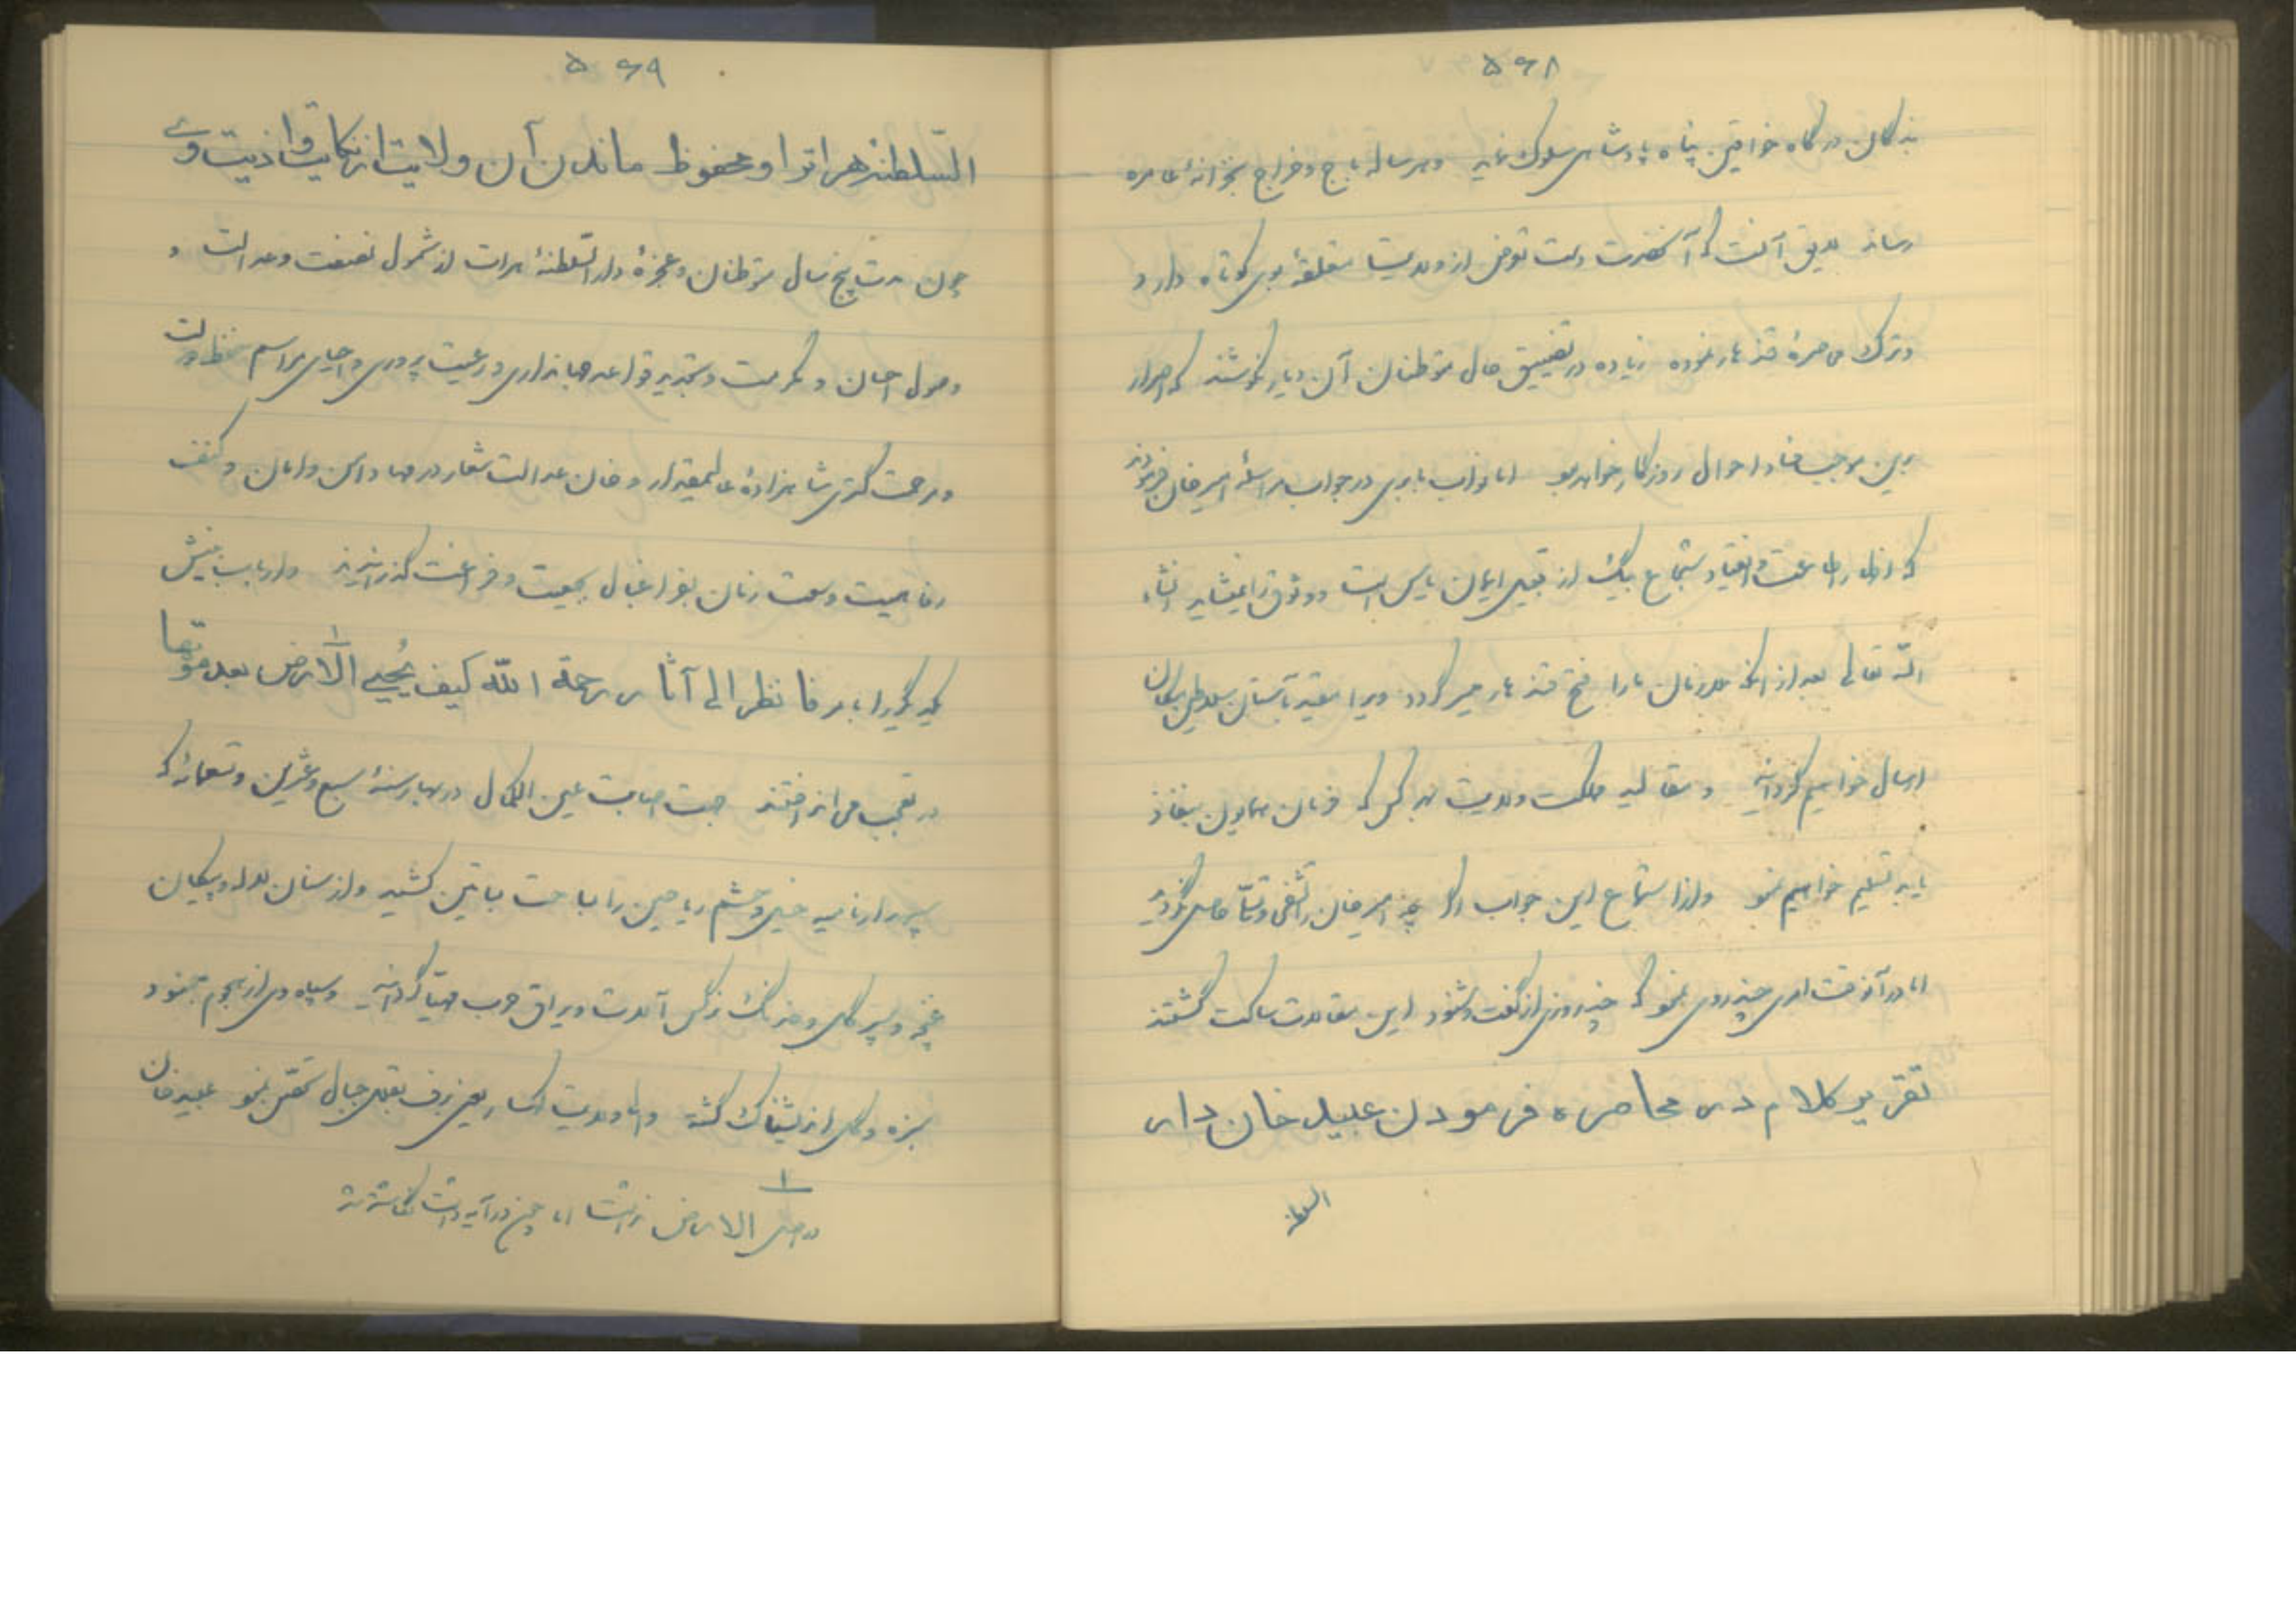 ۵۶۸
بندگان درگاه خواقین پناه پادشاهی سلوک نماید و هر ساله باج و خراج بخزانهٔ عامره
رساند لایق آنست که آنحضرت دست تعرض از ولایت متعلقهٔ وی کوتاه دارد و
و ترک محاصرهٔ قندهار نموده زیاده در تضییق حال متوطنان آن دیار نکوشند که اصرار
برین موجب فساد احوال روزگار خواهد بود اما نواب بابری در جواب مراسلهٔ امیرخان فرمودند
که اظهار اطاعت و انقیاد شجاع بیک از قبیل ایمان یاس است و وثوق را نمیشاید انشاء
الله تعالی بعد از آنکه ملازمان ما را فتح قندهار میسر گردد ویرا مقید بآستان سلاطین مکان
ارسال خواهیم گردانید و مقالید مملکت و ولایت بهر کس که فرمان همایون بنفاذ
یابد تسلیم خواهیم نمود و از استماع این جواب اگر چه امیر خان را تشفی و تسلی حاصل نگردید
اما در آنوقت امری چند روی نمود که چند روزی از گفت و شنود این مقالات ساکت گشتند
تقریر کلام در محاصره فرمودن عبید خان دار
السلطنهٔ
۵۶۹
السلطنهٔ هراترا و محفوظ ماندن آن ولایت از نکایت و اذیت وی
چون مدت پنج سال متوطنان و عجزهٔ دارالسلطنهٔ هرات از شمول نصفت و عدالت و
وصول احسان و مکرمت و تجدید قواعد جهانداری و رعیت پروری و احیای مراسم
و مرحمت گستری شاهزادهٔ عالیمقدار و خان عدالت شعار در مهاد امن و امان و کنف
رفاهیت وسعت زمان بفراغبال بجمعیت و فراغت گذرانیدند و ارباب بینش
یکدیگر را بامر فانظر الی آثار رحمة الله کیف یُحیی الارض۱ بعد موتها
در تعجب می انداختند جهت اصابت عین الکمال در بهار سنهٔ سبع و عشرین و تسعمائه که
سپهدار نامیه خیل و حشم ریاحین را بساحت بساتین کشید و از سنان لاله و پیکان
غنچه و سپر گل و خدنگ نرگس آلات و یراق حرب مهیا گردانید و سپاه دی از هجوم جنود
سبزه و گل اندیشناک گشته ولایت انکسار یعنی برف بقلل جبال تحصن نمود عبید خان
۱ در اصل الارض نداشت اما چون در آیه داشت نگاشته شد